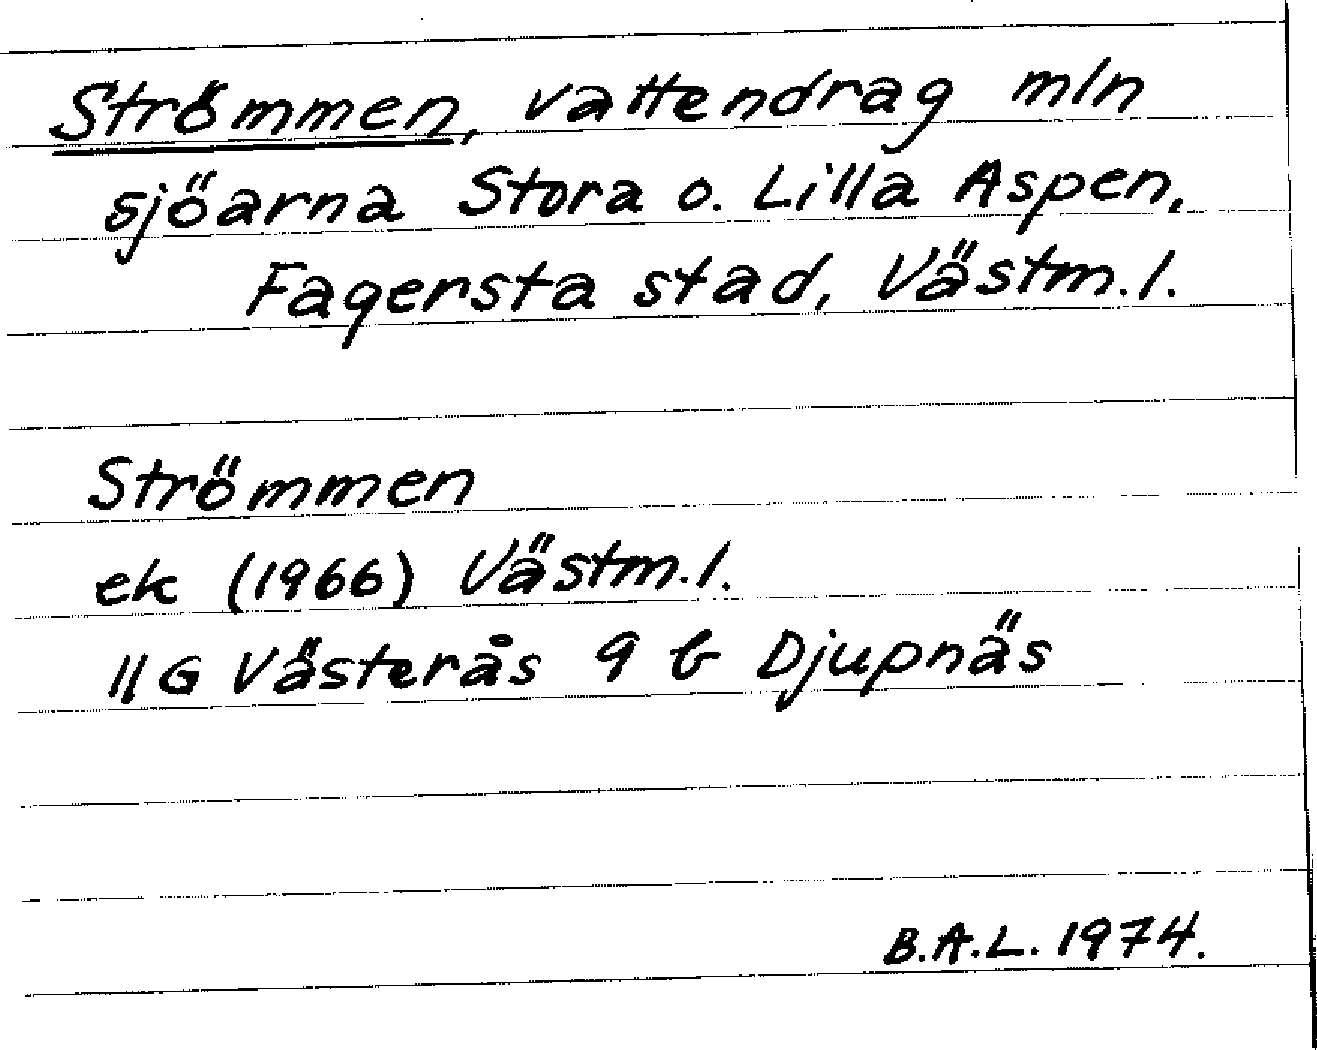 Strömmen, vattendrag mln
sjöarna Stora o. Lilla Aspen,
Fagersta stad, Västm.l.
Strömmen
ek (1966) Västm.l.
11G Västerås 9 b Djupnäs
B.A.L. 1974.